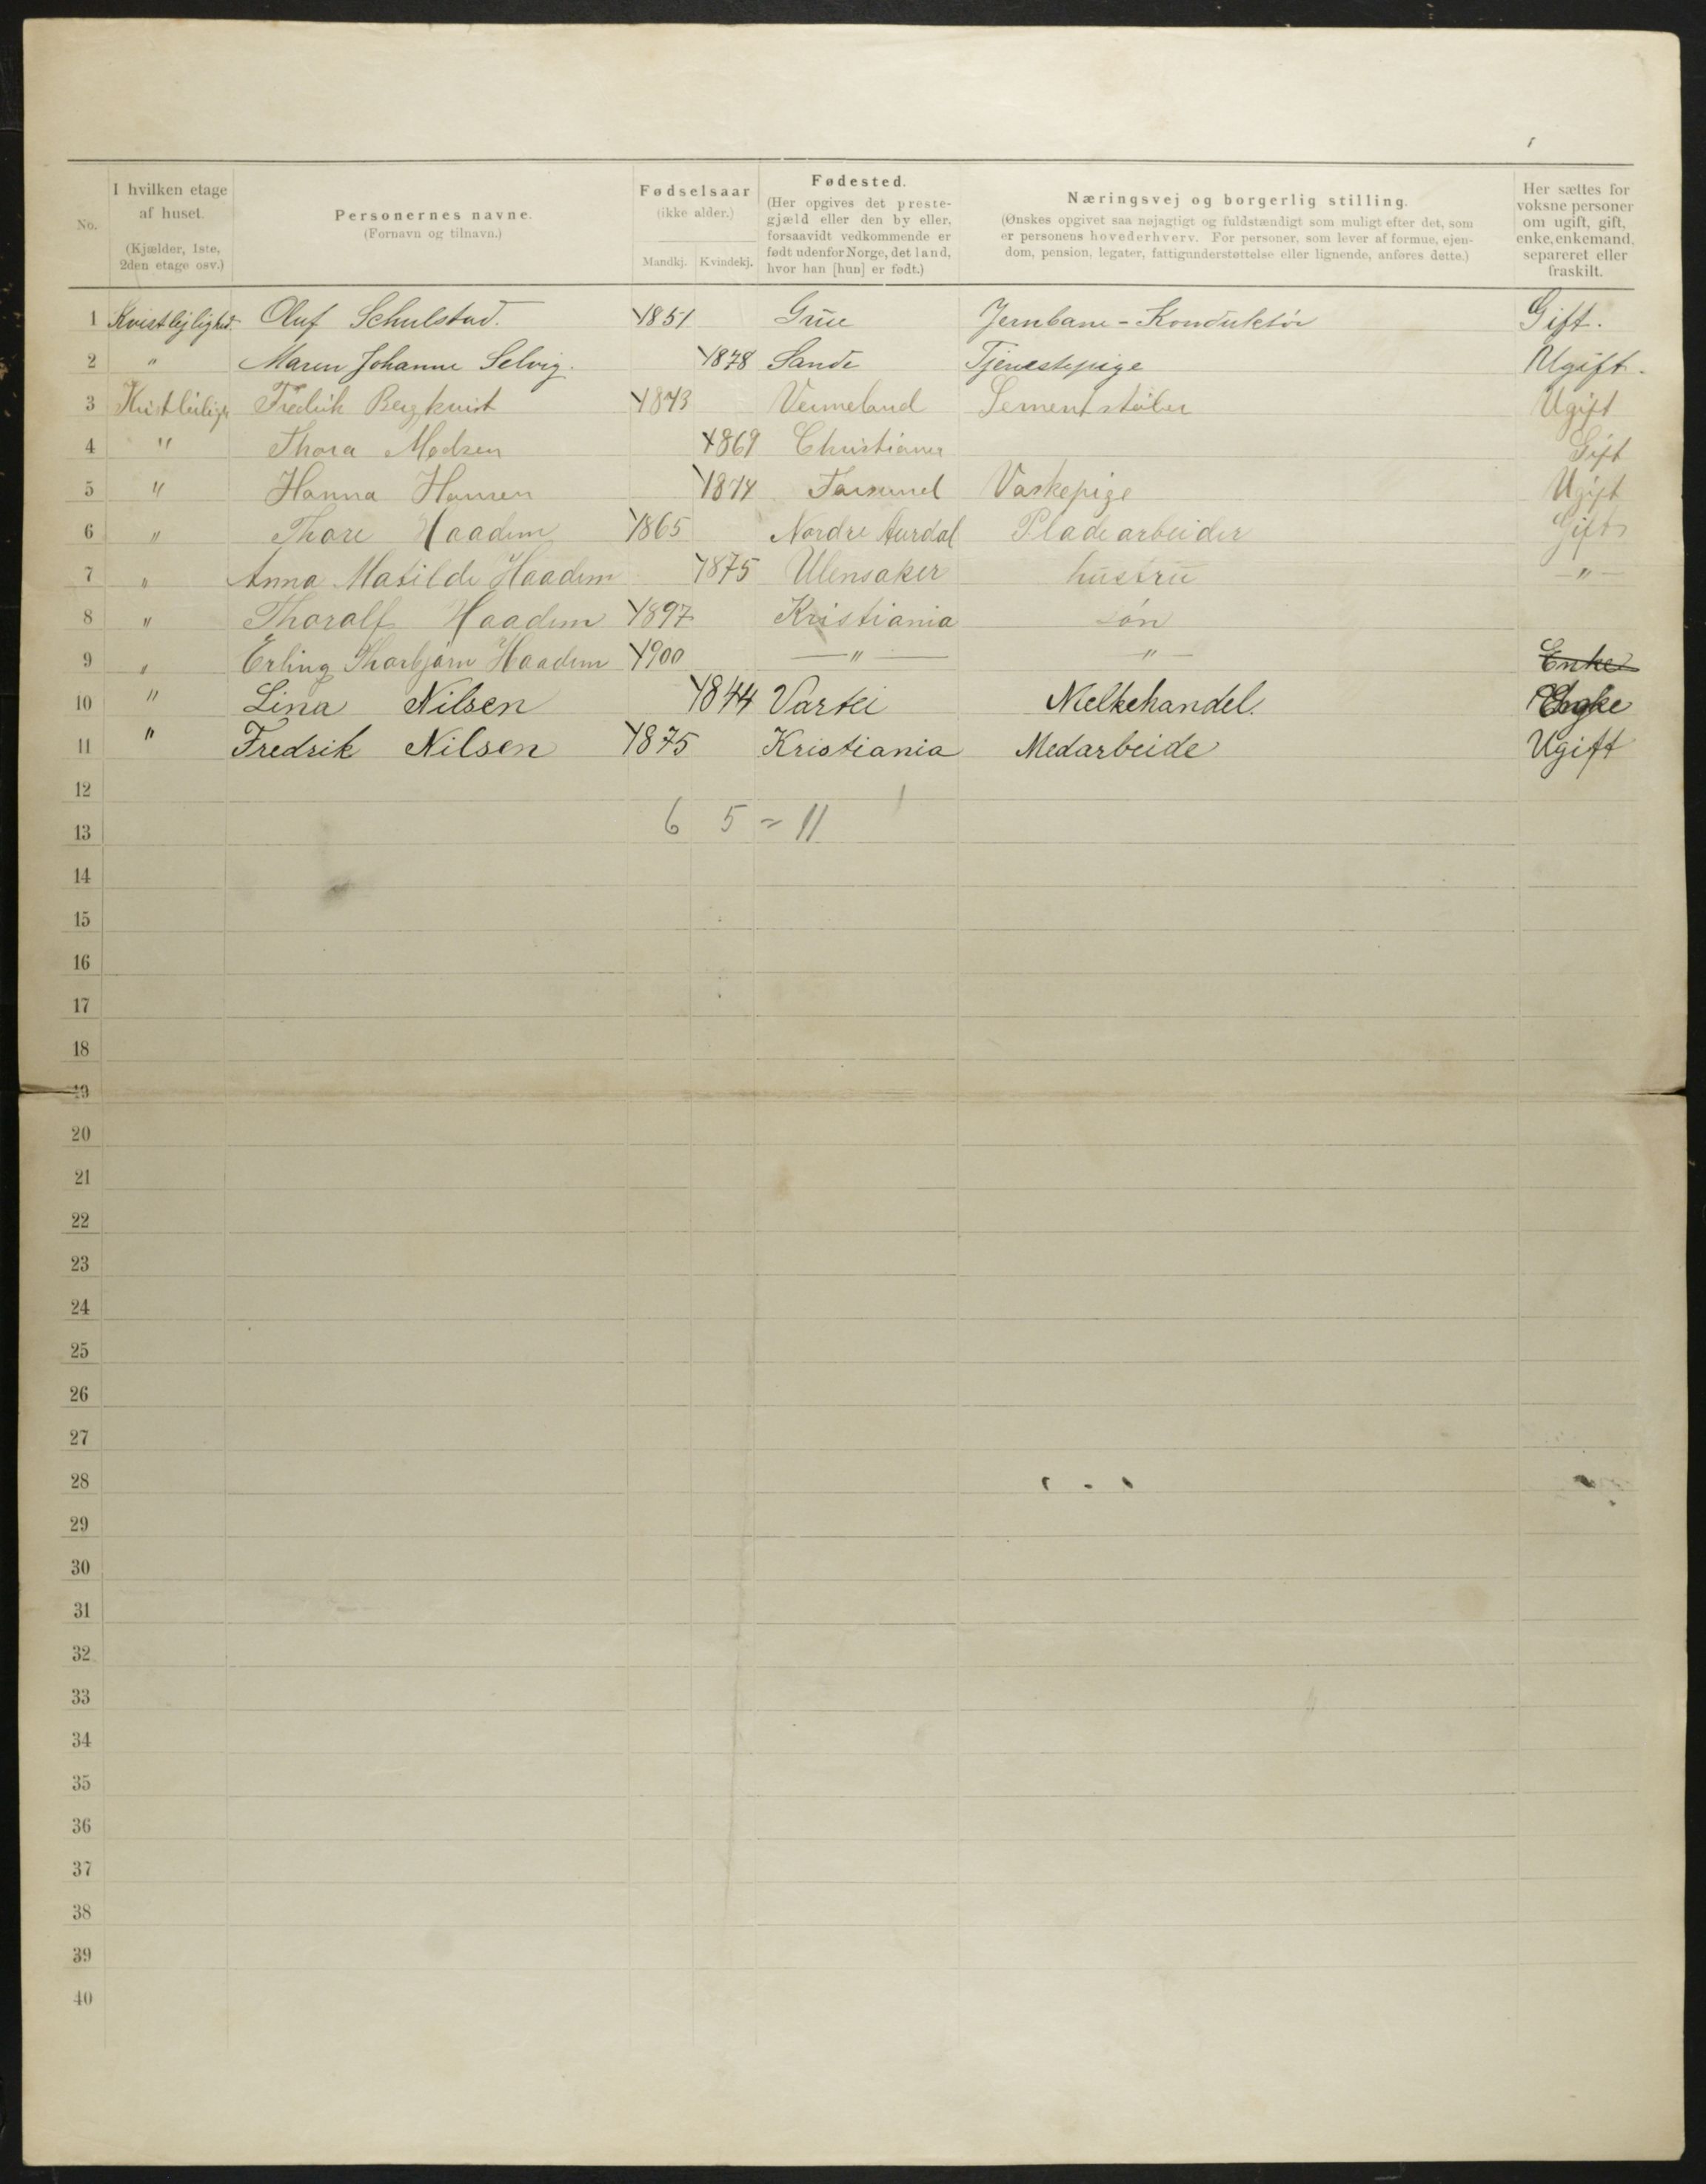 No. I hvilken etage af huset. (Kjælder, 1ste, 2den etage osv.) Personernes navne. (Fornavn og tilnavn.) Fødselsaar (ikke alder.) Mandkj. Kvindekj. Fødested. (Her opgives det prestegjæld eller den by eller, forsaavidt vedkommende er født udenfor Norge, det land, hvor han [hun] er født.) Næringsvej og borgerlig stilling. (Ønskes opgivet saa nøjagtigt og fuldstændigt som muligt efter det, som er personens hovederhverv. For personer, som lever af formue, ejendom, pension, legater, fattigunderstøttelse eller lignende, anføres dette.) Her sættes for voksne personer om ugift, gift, enke, enkemand, separeret eller fraskilt.
1 Kvistlejlighed. Oluf Schulstad. 1851 Grue Jernbane-Konduktör Gift.
2 " Maren Johanne Selvig. 1878 Sande Tjenestepige Ugift.
3 Fredrik Bergkvist 1843 Vermeland Sementstøber Ugift
4 " Thora Madsen 1869 Gift
5 " Hanna Hansen 1874 Vaskepige Ugift
6 " Thore Haadem 1865 Nordre Aurdal Pladearbeider Gift
7 " Anna Matilde Haadem 1875 Ulensaker hustru — " —
8 " Thoralf Haadem 1897 Kristiania søn
9 " Erling Thorbjørn Haadem 1900 — " — — " — Enke
10 " Lina Nilsen 1844 Melkehandel.
11 " Fredrik Nilsen 1875 Kristiania Medarbeide Ugift
12
13 6 5 = 11
14
15
16
17
18
19
20
21
22
23
24
25
26
27
28
29
30
31
32
33
34
35
36
37
38
39
40